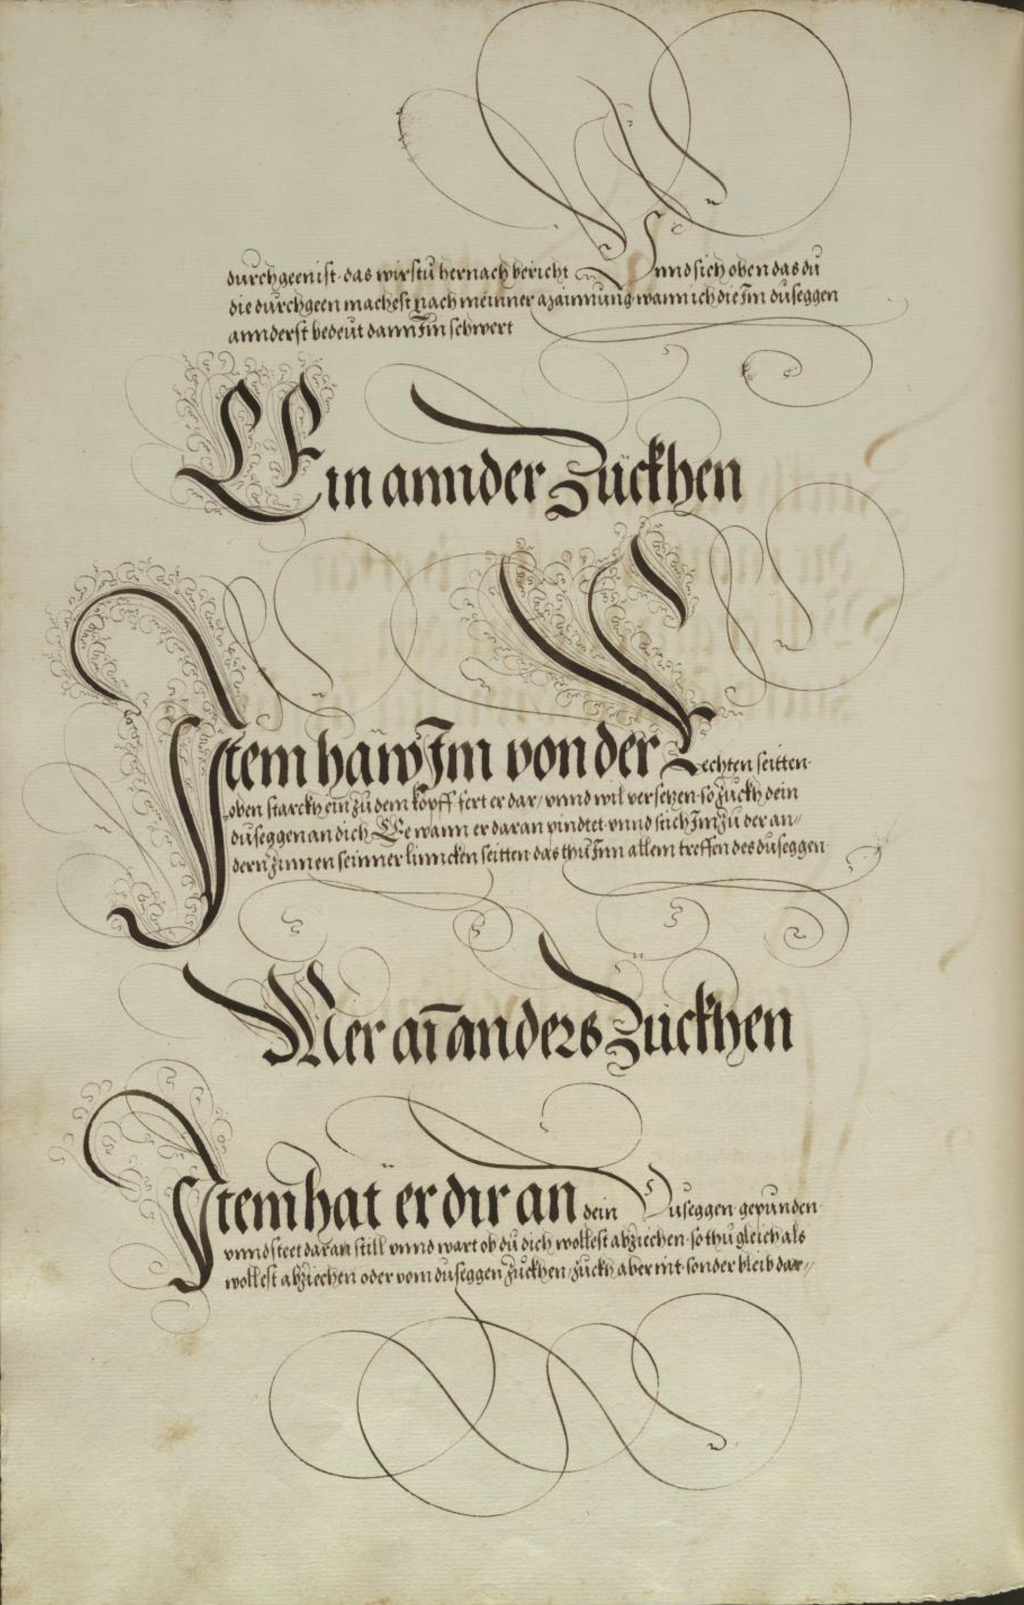 durchgeen ist. das wirstu hernach bericht Vnnd sich oben das du
die durchgeen machest nach meinner azainnung wann ich die Im duseggen
annderst bedeut dann Im schwert
Ein annder Zückhen
Item haw Im von der Rechten seitten.
oben starckh einn zu dem kopff fert er dar/ vnnd wil versetzen. so zuckh dein
duseggen an dich Ee wann er daran pindtet. vnnd stich Im zu der an//
dern zinnen seinner linncken seitten. das thu Inn allem treffen des duseggen.
Mer ain̄ anders Zückhen
Item hat er dir an dein Duseggen gepunden.
vnnd steet daran still vnnd wart ob du dich wollest abziechen. so thu gleich als
wollest abziechen oder vom duseggen zuckhen/ zuckh aber nit. sonder bleib dar//